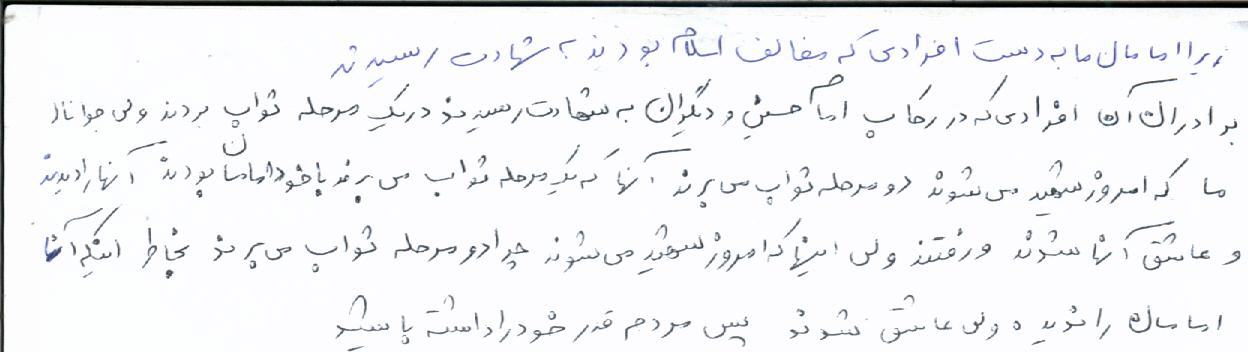 زیرا امامان ما به دست افرادی که مخالف اسلام بودند به شهادت رسیدند
برادران آن افرادی که در رکاب امام حسین و دیگران به شهادت رسیدند در یک مرحله ثواب بردند ولی جوانان
ما که امروز شهید می شوند دو مرحله ثواب می برند آنها که یک مرحله ثواب می برند با خود امامان بودند آنها را دیدند
و عاشق آنها شوند و رفتند ولی اینها که امروز شهید می شوند چرا دو مرحله ثواب می برند بخاطر اینکه آنها
امامان را ندیده ولی عاشق شوند پس مردم قدر خود را داشته باشید